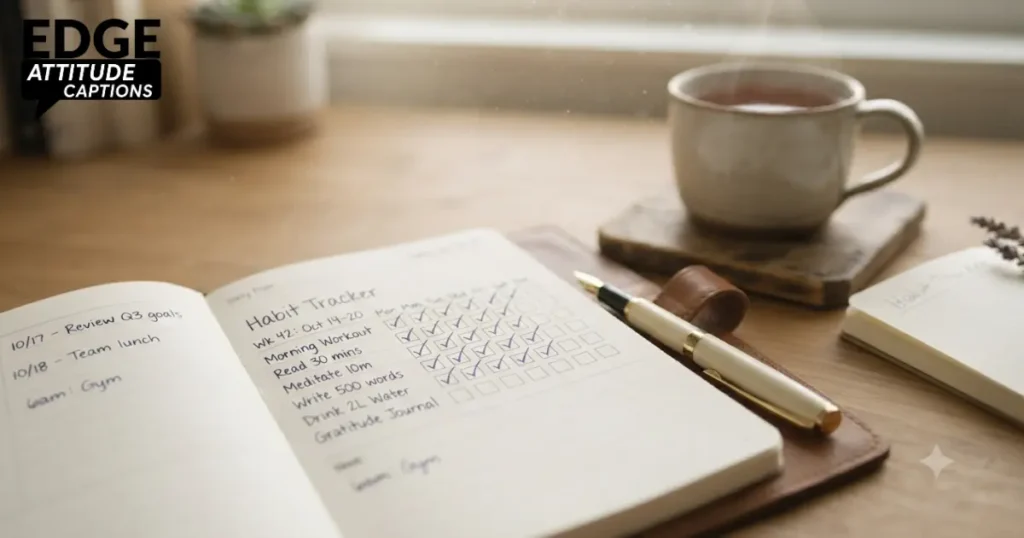 EDGE
ATTITUDE
CAPTIONS
10/17 - Review Q3 goals
10/18 - Team lunch
6am: Gym
Habit Tracker
Wk 42: Oct 14-20
Morning Workout
Read 30 mins
Meditate 10m
Write 500 words
Drink 2L Water
Gratitude Journal
Gym